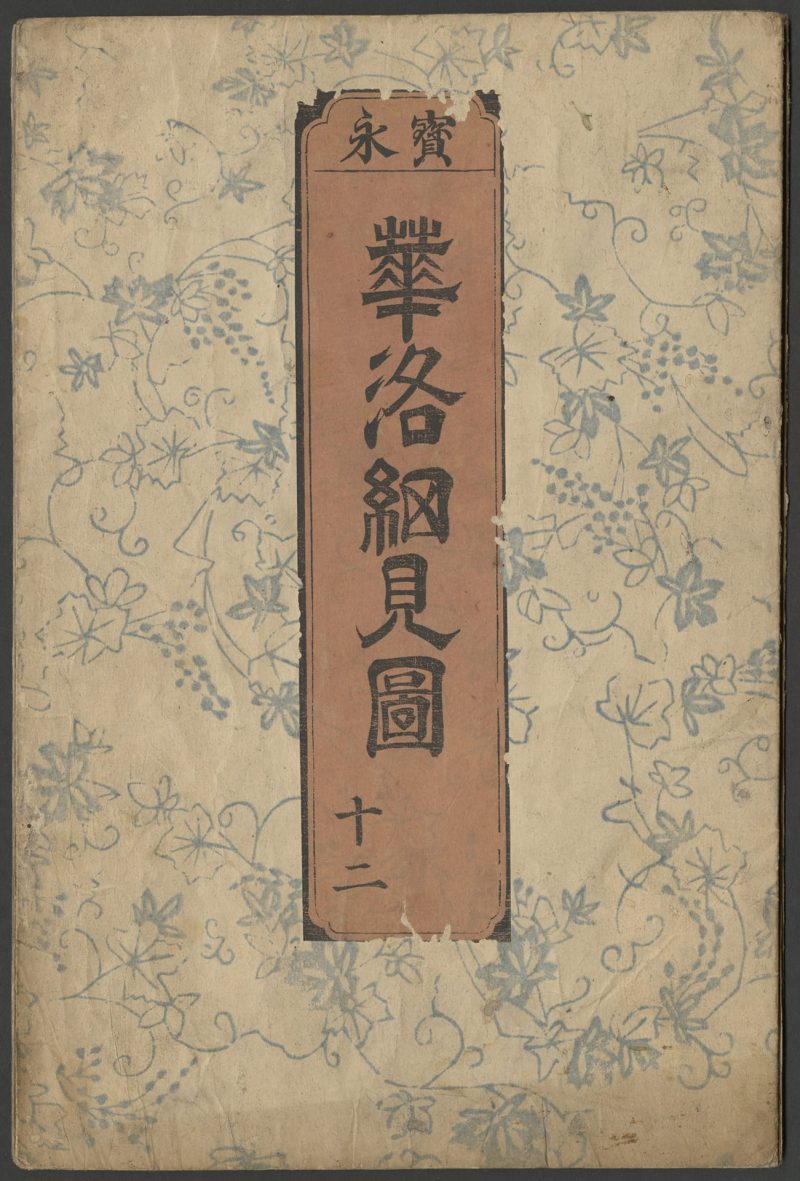 寳永
華洛細見圖
十二